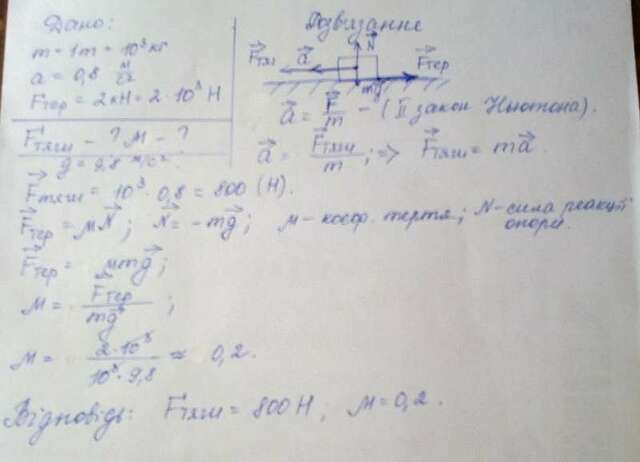 Дано:
m = 1т = 10³ кг
a = 0,8 м/с²
Fтер = 2кН = 2·10³ Н
Fтяги - ? μ - ?
g = 9,8 м/с²
Розвязання
Fтяг a N Fтер
mg
a = F/m - (II закон Ньютона).
a = Fтяги/m ; => Fтяги = ma
Fтяги = 10³·0,8 = 800 (Н).
Fтер = μN; N = -mg; μ - коеф. тертя; N - сила реакції опори.
Fтер = μmg;
μ = Fтер/mg ;
μ = 2·10³/10³·9,8 ≈ 0,2.
Відповідь: Fтяги = 800Н; μ = 0,2.